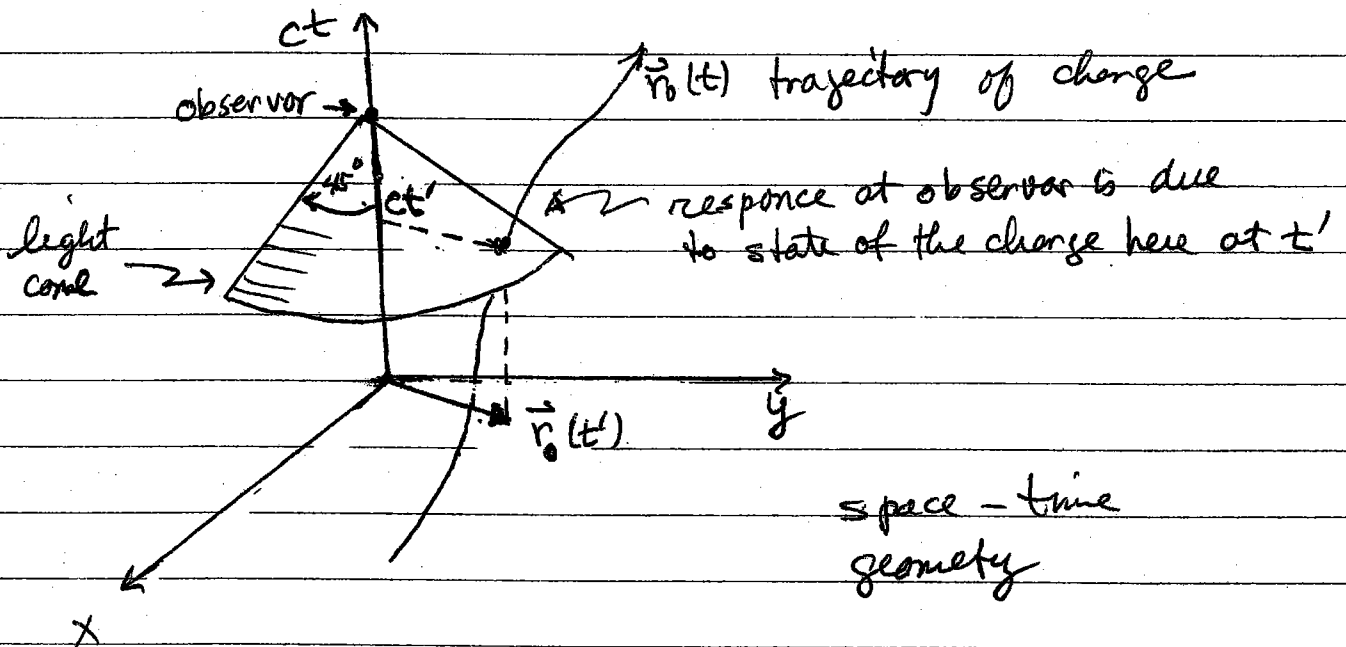 ct
r⃗₀(t) trajectory of charge
observor →
45°
ct'
responce at observor is due
to state of the charge here at t'
light
cone
y
r⃗₀(t')
space - time
geometry
x